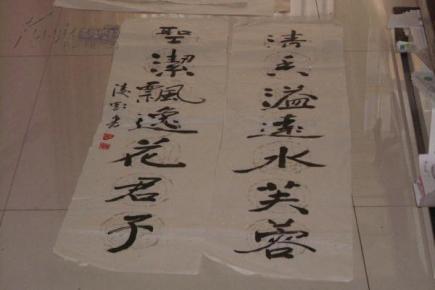 清香溢遠水芙蓉
聖潔飄逸花君子